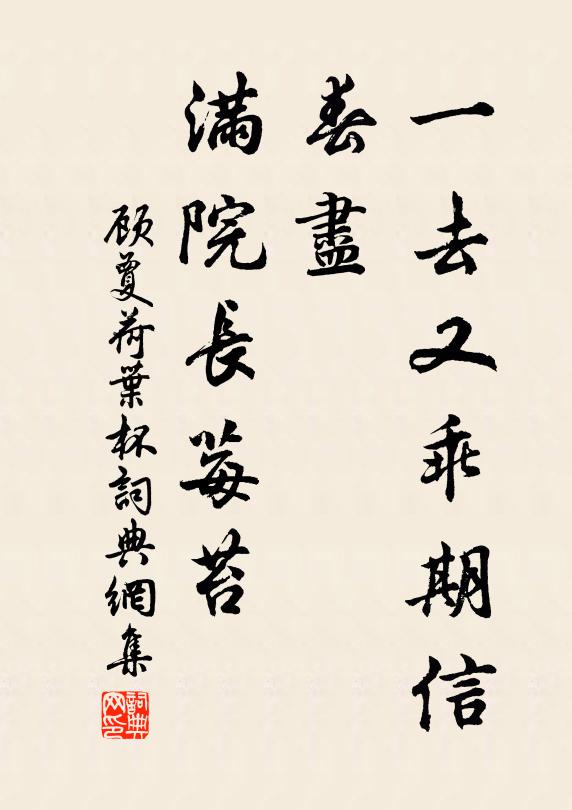 一去又乖期信
春盡
滿院長莓苔
顾夐荷葉杯詞典網集
詞典
网印